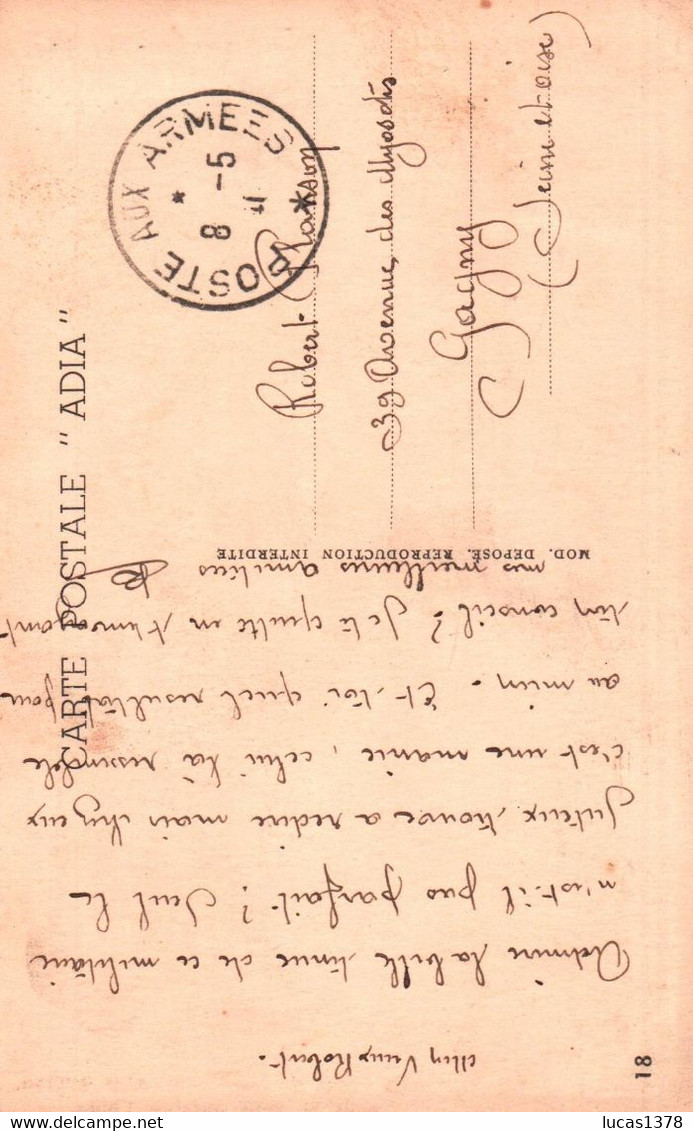 CARTE POSTALE " ADIA "
POSTE AUX ARMEES
* 8 -5 *
Robert
39 Avenue des Myosotis
Gagny
(Seine et oise)
MOD. DEPOSÉ. REPRODUCTION INTERDITE
18
Mon Vieux Robert.
Admire la belle tenue de ce militaire
n'est-il pas parfait ? Seul le
juteux trouve a redire mais chez eux
c'est une manie, celui là ressemble
au mien. Et toi quel resultat pour
ton conseil ? Je te quitte en t'envoyant
mes meilleures amitiées
lucas1378
lucas1378